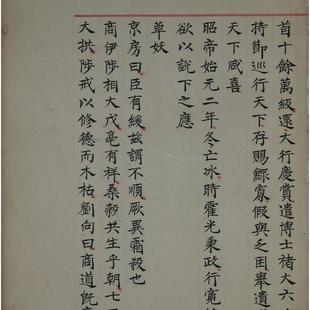 首十餘萬級還大行慶賞遣博士褚大六人
持節巡行天下存賜鰥寡假與乏困舉遺
天下咸喜
昭帝始元二年冬亡冰時霍光秉政行寬
欲以說下之應
草妖
京房曰臣有緩兹謂不順厥異霜殺也
商伊陟相大戊亳有祥桑榖共生乎朝七
大拱陟戒以修德而木枯劉向曰商道既